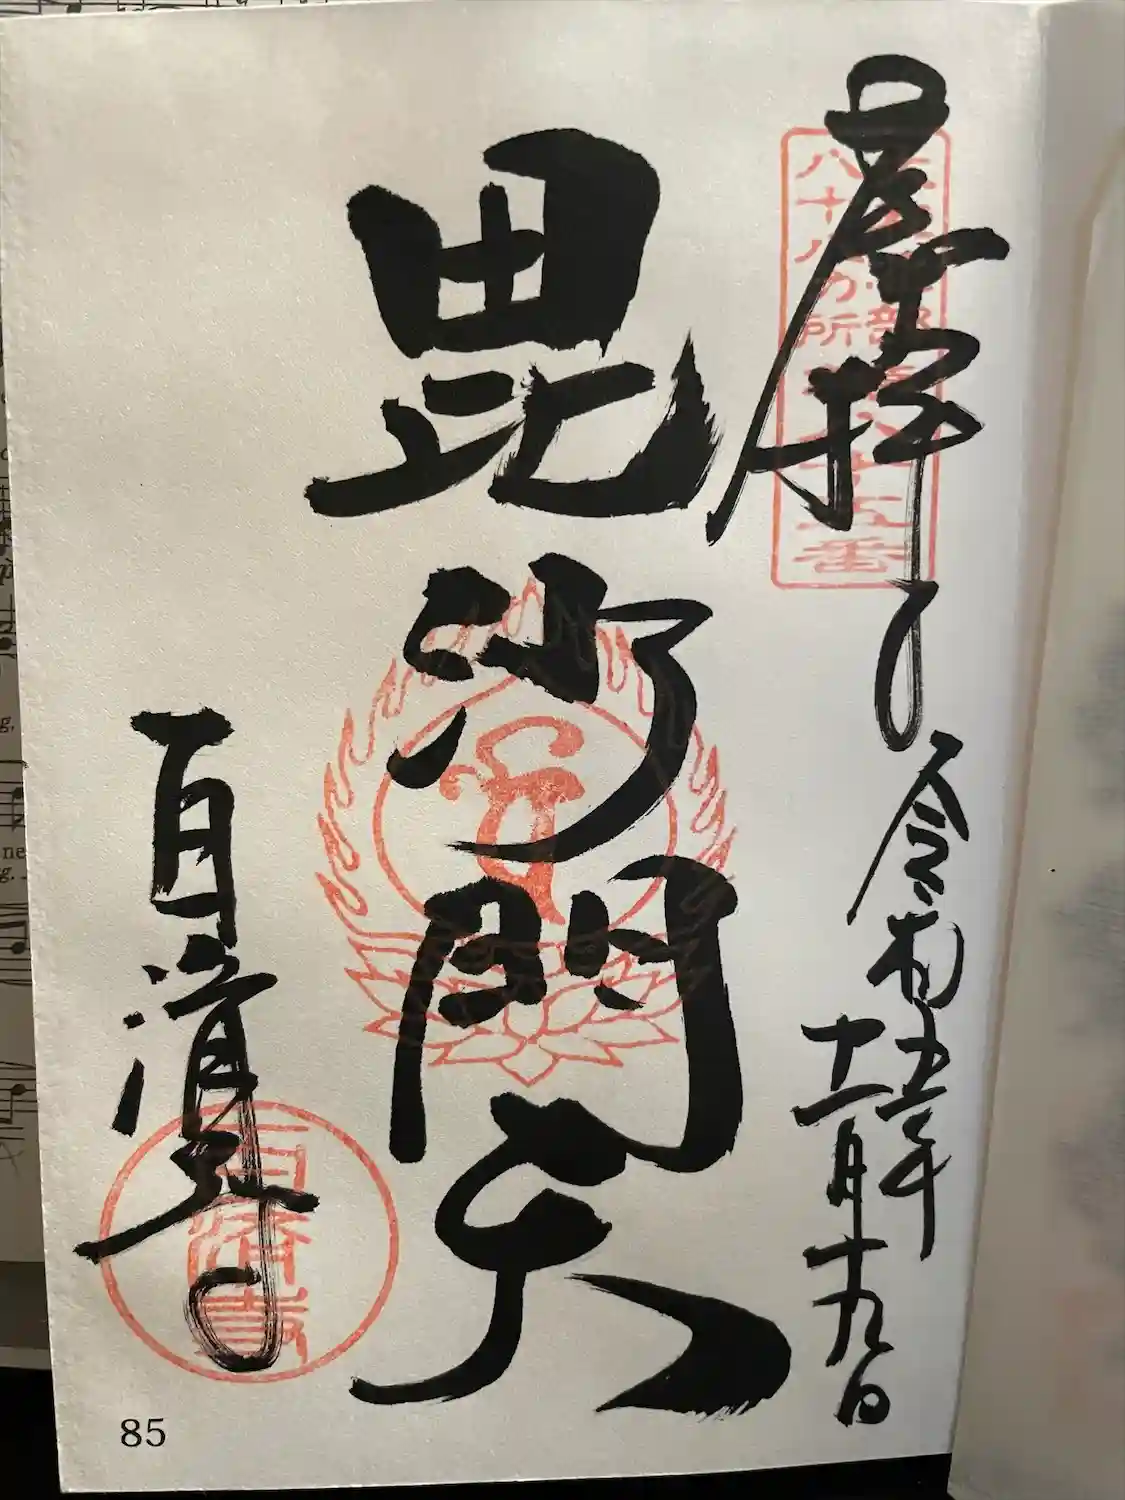 奉拝
令和五年
十二月十九日
八十八カ所
八十五番
毘沙門天
百済寺
百済寺
85